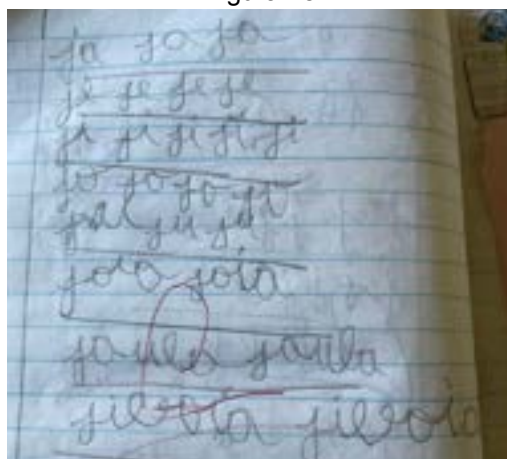 ja jo ja
je je je je
ji ji ji ji ji
jo jo jo jo
ju ju ju
joia joia
janela janela
jiboia jiboia